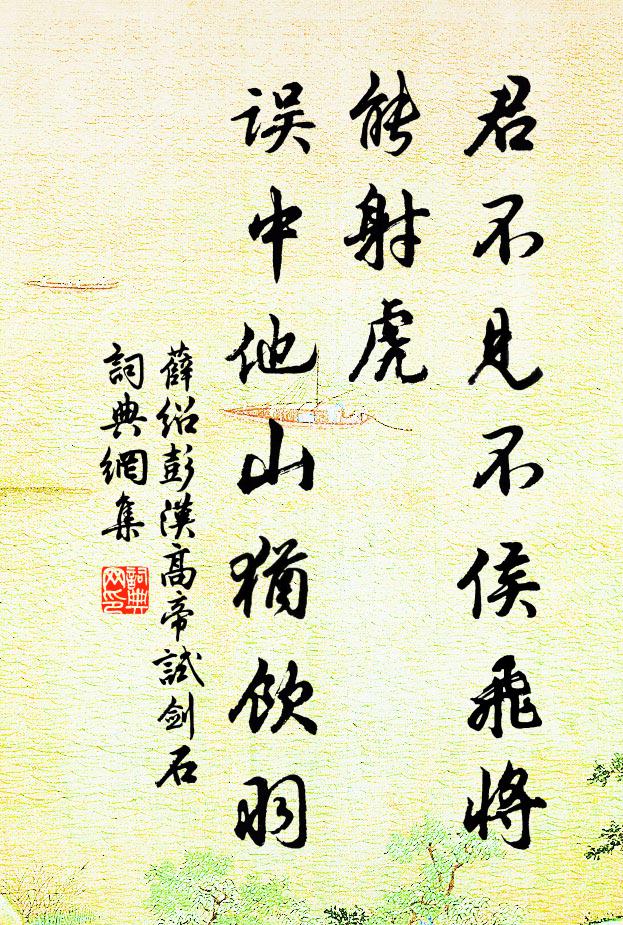 君不见不侯飛將
能射虎
误中他山猶饮羽
薛绍彭漢高帝試劍石
詞典網集
詞典
网印